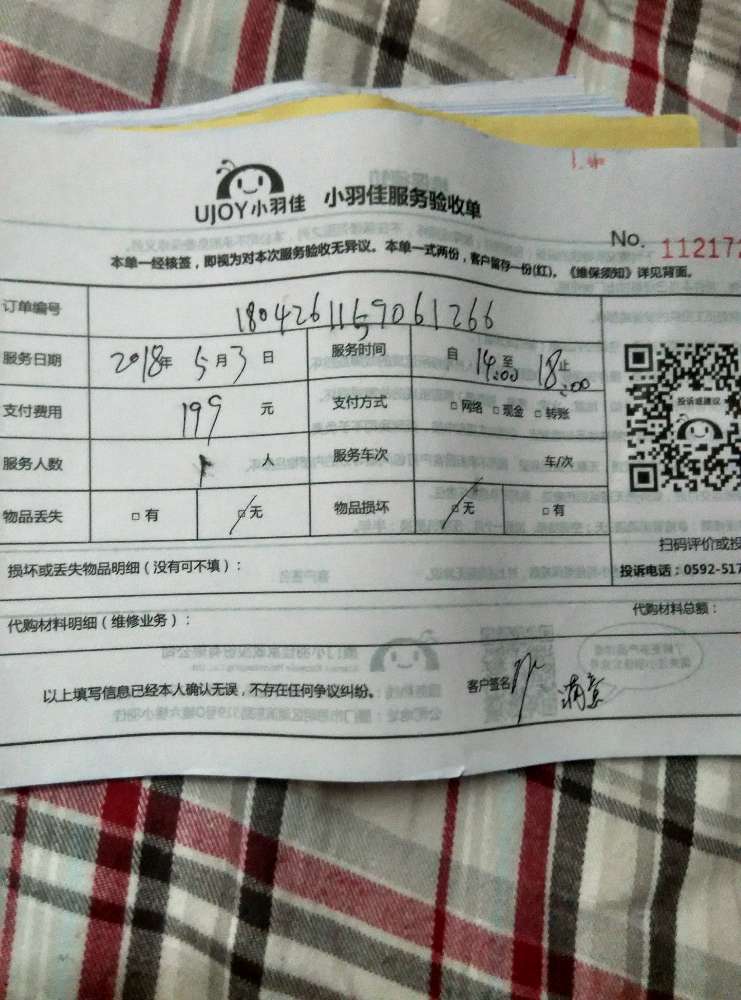 UJOY小羽佳 小羽佳服务验收单
No. 112172
本单一经核签，即视为对本次服务验收无异议。本单一式两份，客户留存一份(红)。《维保须知》详见背面。
订单编号 1804261159061266
服务日期 2018年 5月3日 服务时间 自 14:00 至 18:00 止
支付费用 199 元 支付方式 □ 网络 □ 现金 □ 转账
投诉或建议
服务人数 1 人 服务车次 车/次
物品丢失 □ 有 □ 无 物品损坏 □ 无 □ 有
扫码评价或投
损坏或丢失物品明细（没有可不填）：
投诉电话：0592-517
代购材料明细（维修业务）：
代购材料总额：
以上填写信息已经本人确认无误，不存在任何争议纠纷。 客户签名 满意